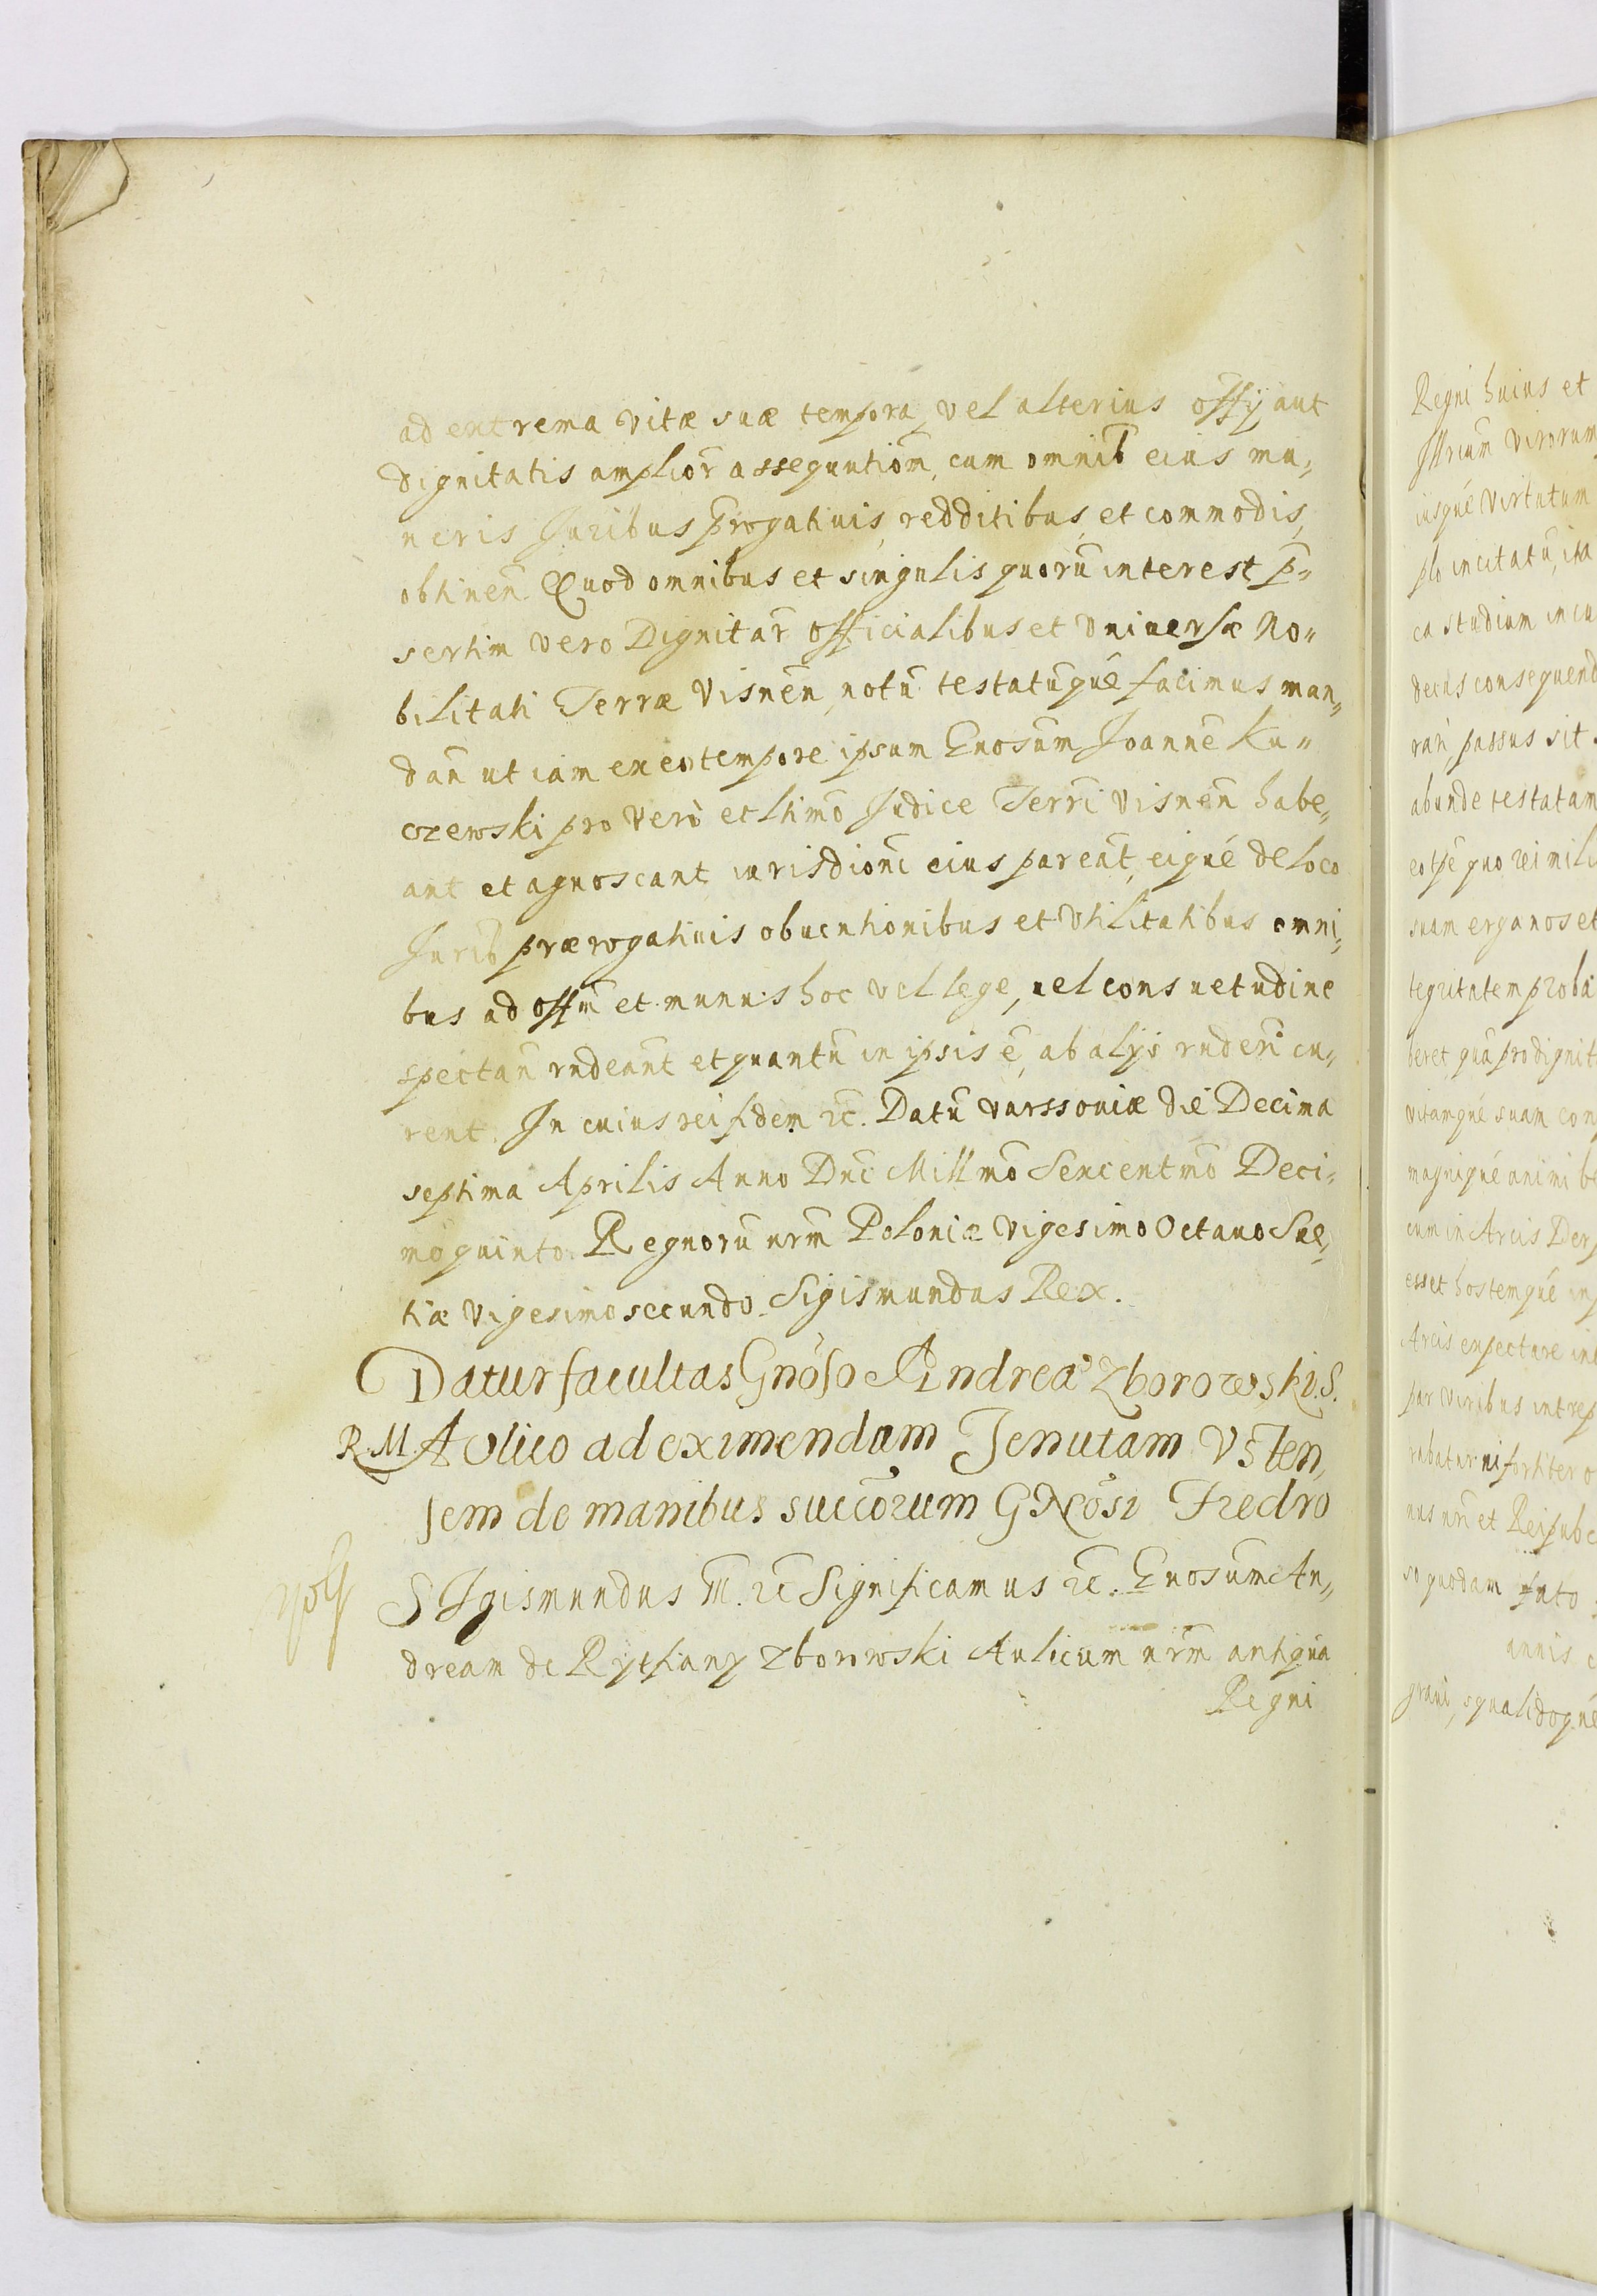 ad extrema vitæ suæ tempora, vel alterius offy aut
dignitatis amplior assequutiom, cum omnib eius mu,,
neris Juribus Progatiuis, redditibus, et commodis,
obtinen. Quod omnibus et singulis quorū interest p̄,,
sertim vero Dignitar officialibus et vniuersæ No,,
bilitati Terræ Visnen, notū testatūqué facimus man,,
dañ ut iam ex eo tempore ipsum Gnosum Joannē Ku,,
czewski pro verò et ltimo Judice Terri Visnen habe,,
ant et agnoscant, iurisdioni eius pareāt, eiqué de loco
Jurib prærogatiuis obuentionibus et Vtilitatibus omni,,
bus ad offm et munus hoc vel lege, uel consuetudine
spectañ rndeant et quantū in ipsis ē, ab alys rnderi cu,,
rent. In cuius rei fidem ꝛc. Datū Varssouiæ die Decima
septima Aprilis Anno Dni Millmo Sexcentmo Deci,,
moquinto. Regnorū nrm Poloniæ Vigesimo Octauo Sue,,
tiæ Vigesimo secundo. Sigismundus Rex.
Datur facultas Gnoso Andreæ Zborowski. S.
R. M. Aulico ad eximendam Tenutam Vsten,,
sem de manibus succorum GNosi Fredro
SIgismundus III. ꝛc Significamus ꝛc. Gnosum An,,
dream de Rytfiany Zborowski Aulicum nrm antiqua
Regni
Regni huius et
Illrium virorum
iusqué virtutum
plo incitatū, ita
ea studium incu
decus consequend
rari passus sit.
abunde testatam
eo tpe quo rei mili
suam erga nos et
tegritatem proba
beret quā pro dignit
vitamqué suam con
magniqué animi be
cum in Arcis Derp
esset hostemqué in
Arcis expectare in
par viribus intrep
rabatur ni fortiter o
nus nri et Reipub c
so quodam fato
annis c
graui, squalidoqué